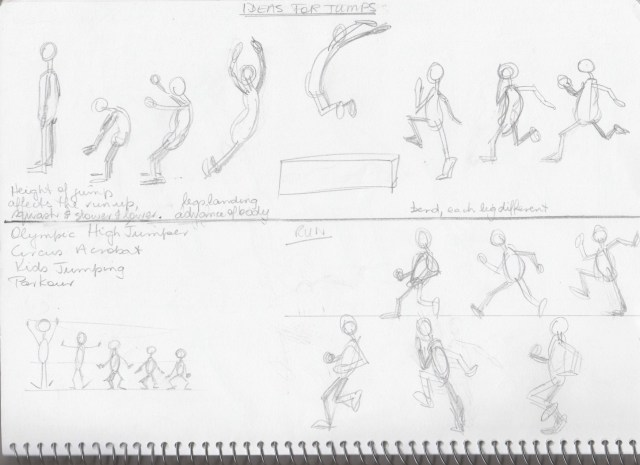 IDEAS FOR JUMPS
Height of jump
affects the runup,
squash & slower & lower.
legs landing
advance of body
bend, each leg different
Olympic High Jumper
Circus Acrobat
Kids Jumping
Parkour
RUN